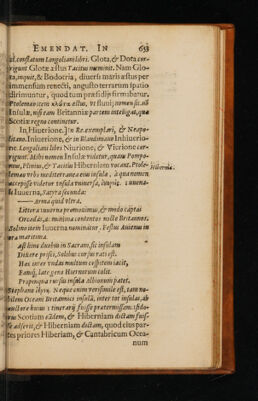 EMENDAT. IN 633
al. constatum Longolianilibri. Glota, & Dota cor-
rigunt Glotæ æstus Tacitus meminit. Nam Glo-
ta, inquit, & Bodotria, diversi maris æstus per
immensum revecti, angusto terrarum spatio
dirimuntur, quod tum præsidijs firmabatur.
Ptolemæo item æstus, vt sluuij nomen sic. ad
Insulæ, nisi eam Britanniæ partem intelligat, quæ
Scotiæ regno continetur.
In, Hiuerione.] In Re. exemplari, & Neapo-
litano. Iuuerione, & in Blandiniano Inhiuerio-
ne. Longoliani libri Niurione, & Viurione cor-
rigunt. Mihi nomen Insulæ videtur, quam Pompo-
nius, Plinius, & Tacitus Hiberniam vocant. Ptole-
mæo vrbs mediterranea eius insulæ, à qua nomen
Hibernia.
accepisse videtur insula vniuersa, Iuuenalis
de Iuuerna, Satyra secunda:
—— Arma quid vltra.
Littora iuuernæ promouimus, & modo captas
Orcadas, ac minima contentos nocte Britannos.
Solino item Iuuerna nominatur. Festus Auienus in
ora maritima.
Ast hinc duobus in Sacram, sic insulam
Dixere prisci, solibus cursus rati est.
Hæc inter vndas multum cespitem iacit,
Eamq́; late gens Hiernorum colit.
Propinqua rursus insula Albionum patet.
Stephano Neque enim verisimile est, tam no-
bilem Oceani Britannici insulã, inter tot insulas, ab
fuisse prætermissam.
rus Scotiam eãdem, & Hiberniam dictam fuis-
se adserit, & Hiberniam dictam, quod eius par-
tes priores Hiberiam, & Cantabricum Ocea-
num